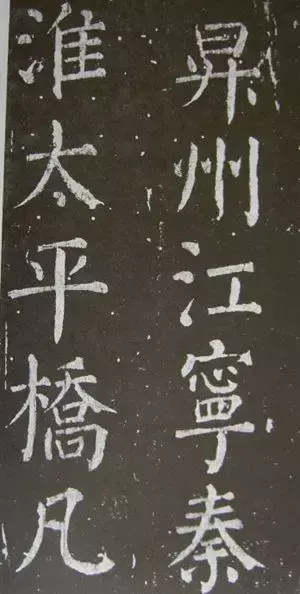 昇州江寧秦
淮太平橋凡